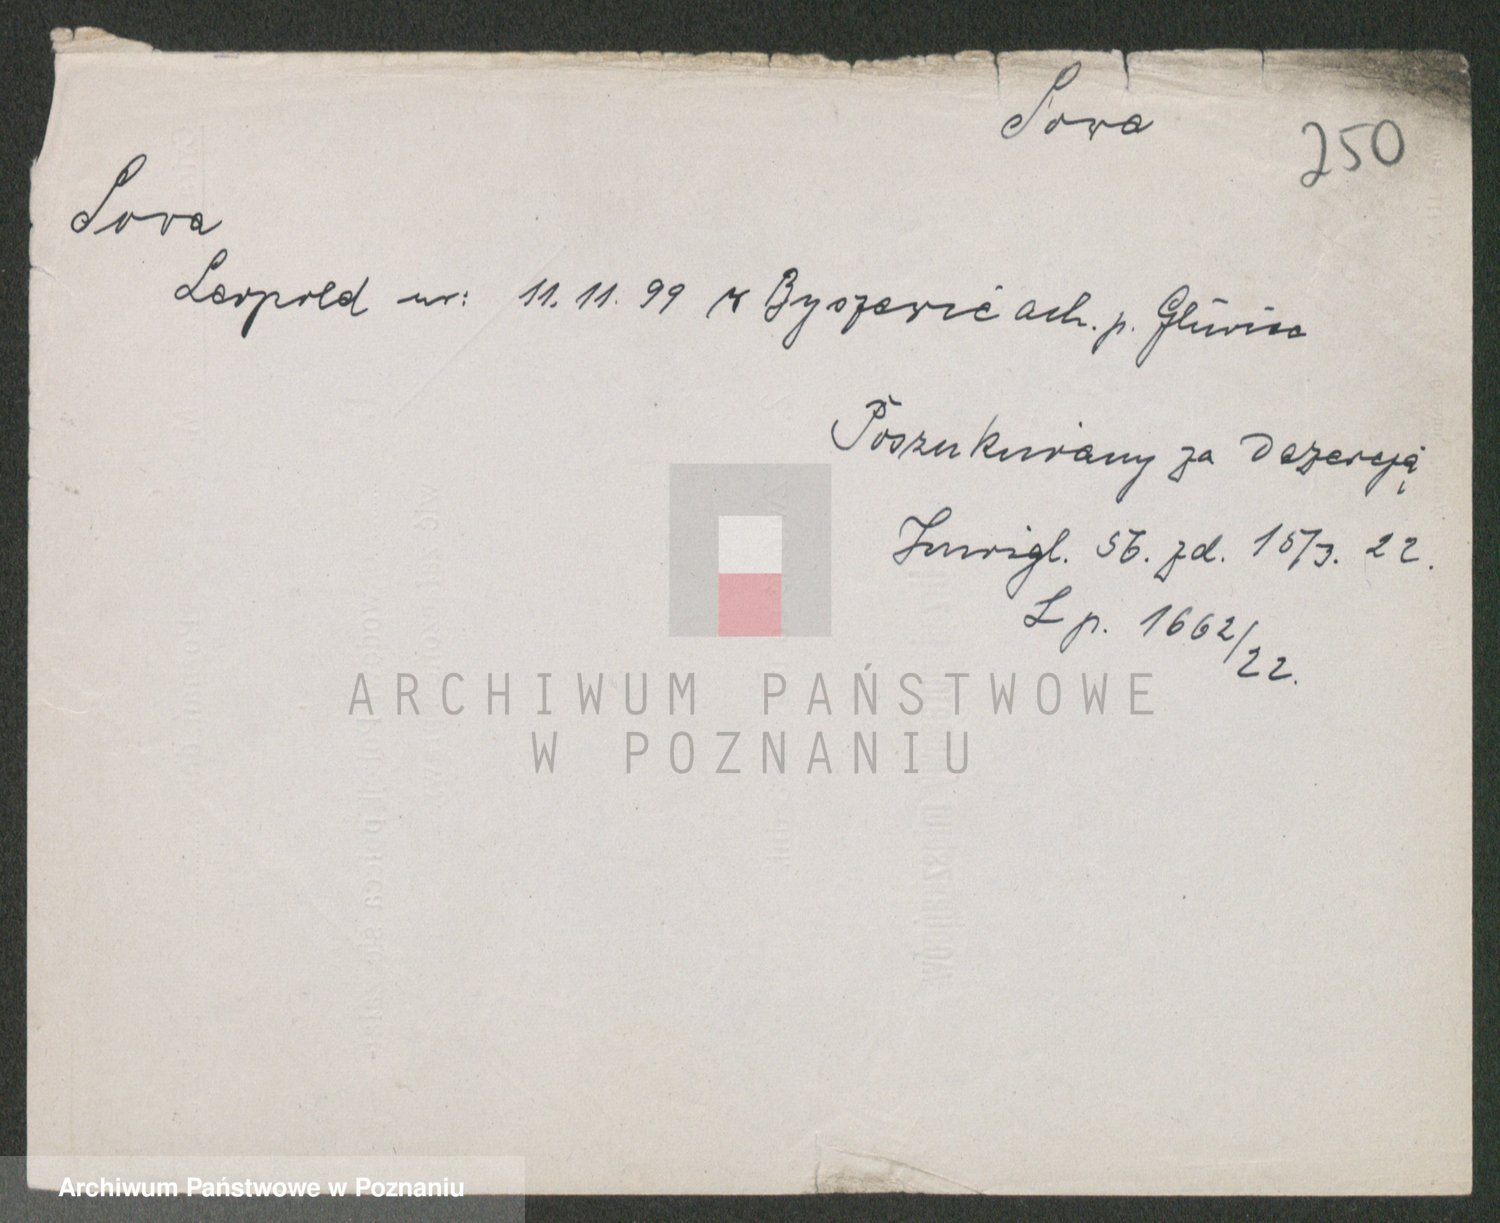 Sowa
250
Sowa
Leopold ur: 11. 11. 99 w Byszewicach. p. Gliwice
Poszukiwany za Dezercję
Inwigl. 56. zd. 15/3. 22.
L p. 1662/22.
ARCHIWUM PAŃSTWOWE
W POZNANIU
Archiwum Państwowe w Poznaniu